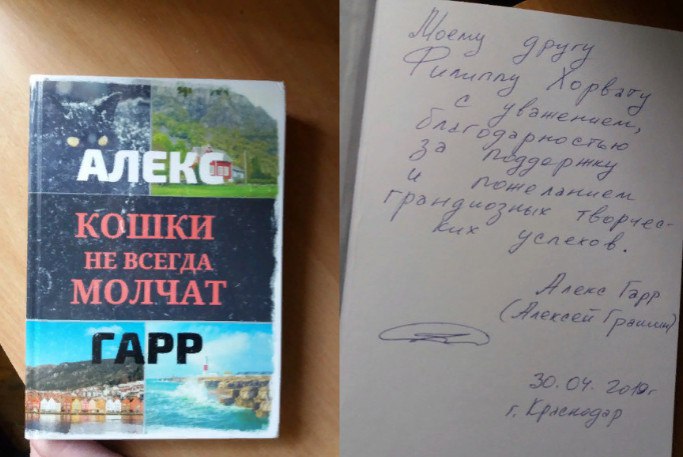 АЛЕКС
КОШКИ
НЕ ВСЕГДА
МОЛЧАТ
ГАРР
Моему другу
Филиппу Хорвату
с уважением,
благодарностью
за поддержку
и пожеланием
грандиозных творчес-
ких успехов.
Алекс Гарр
(Алексей
30.04.
г. Краснодар